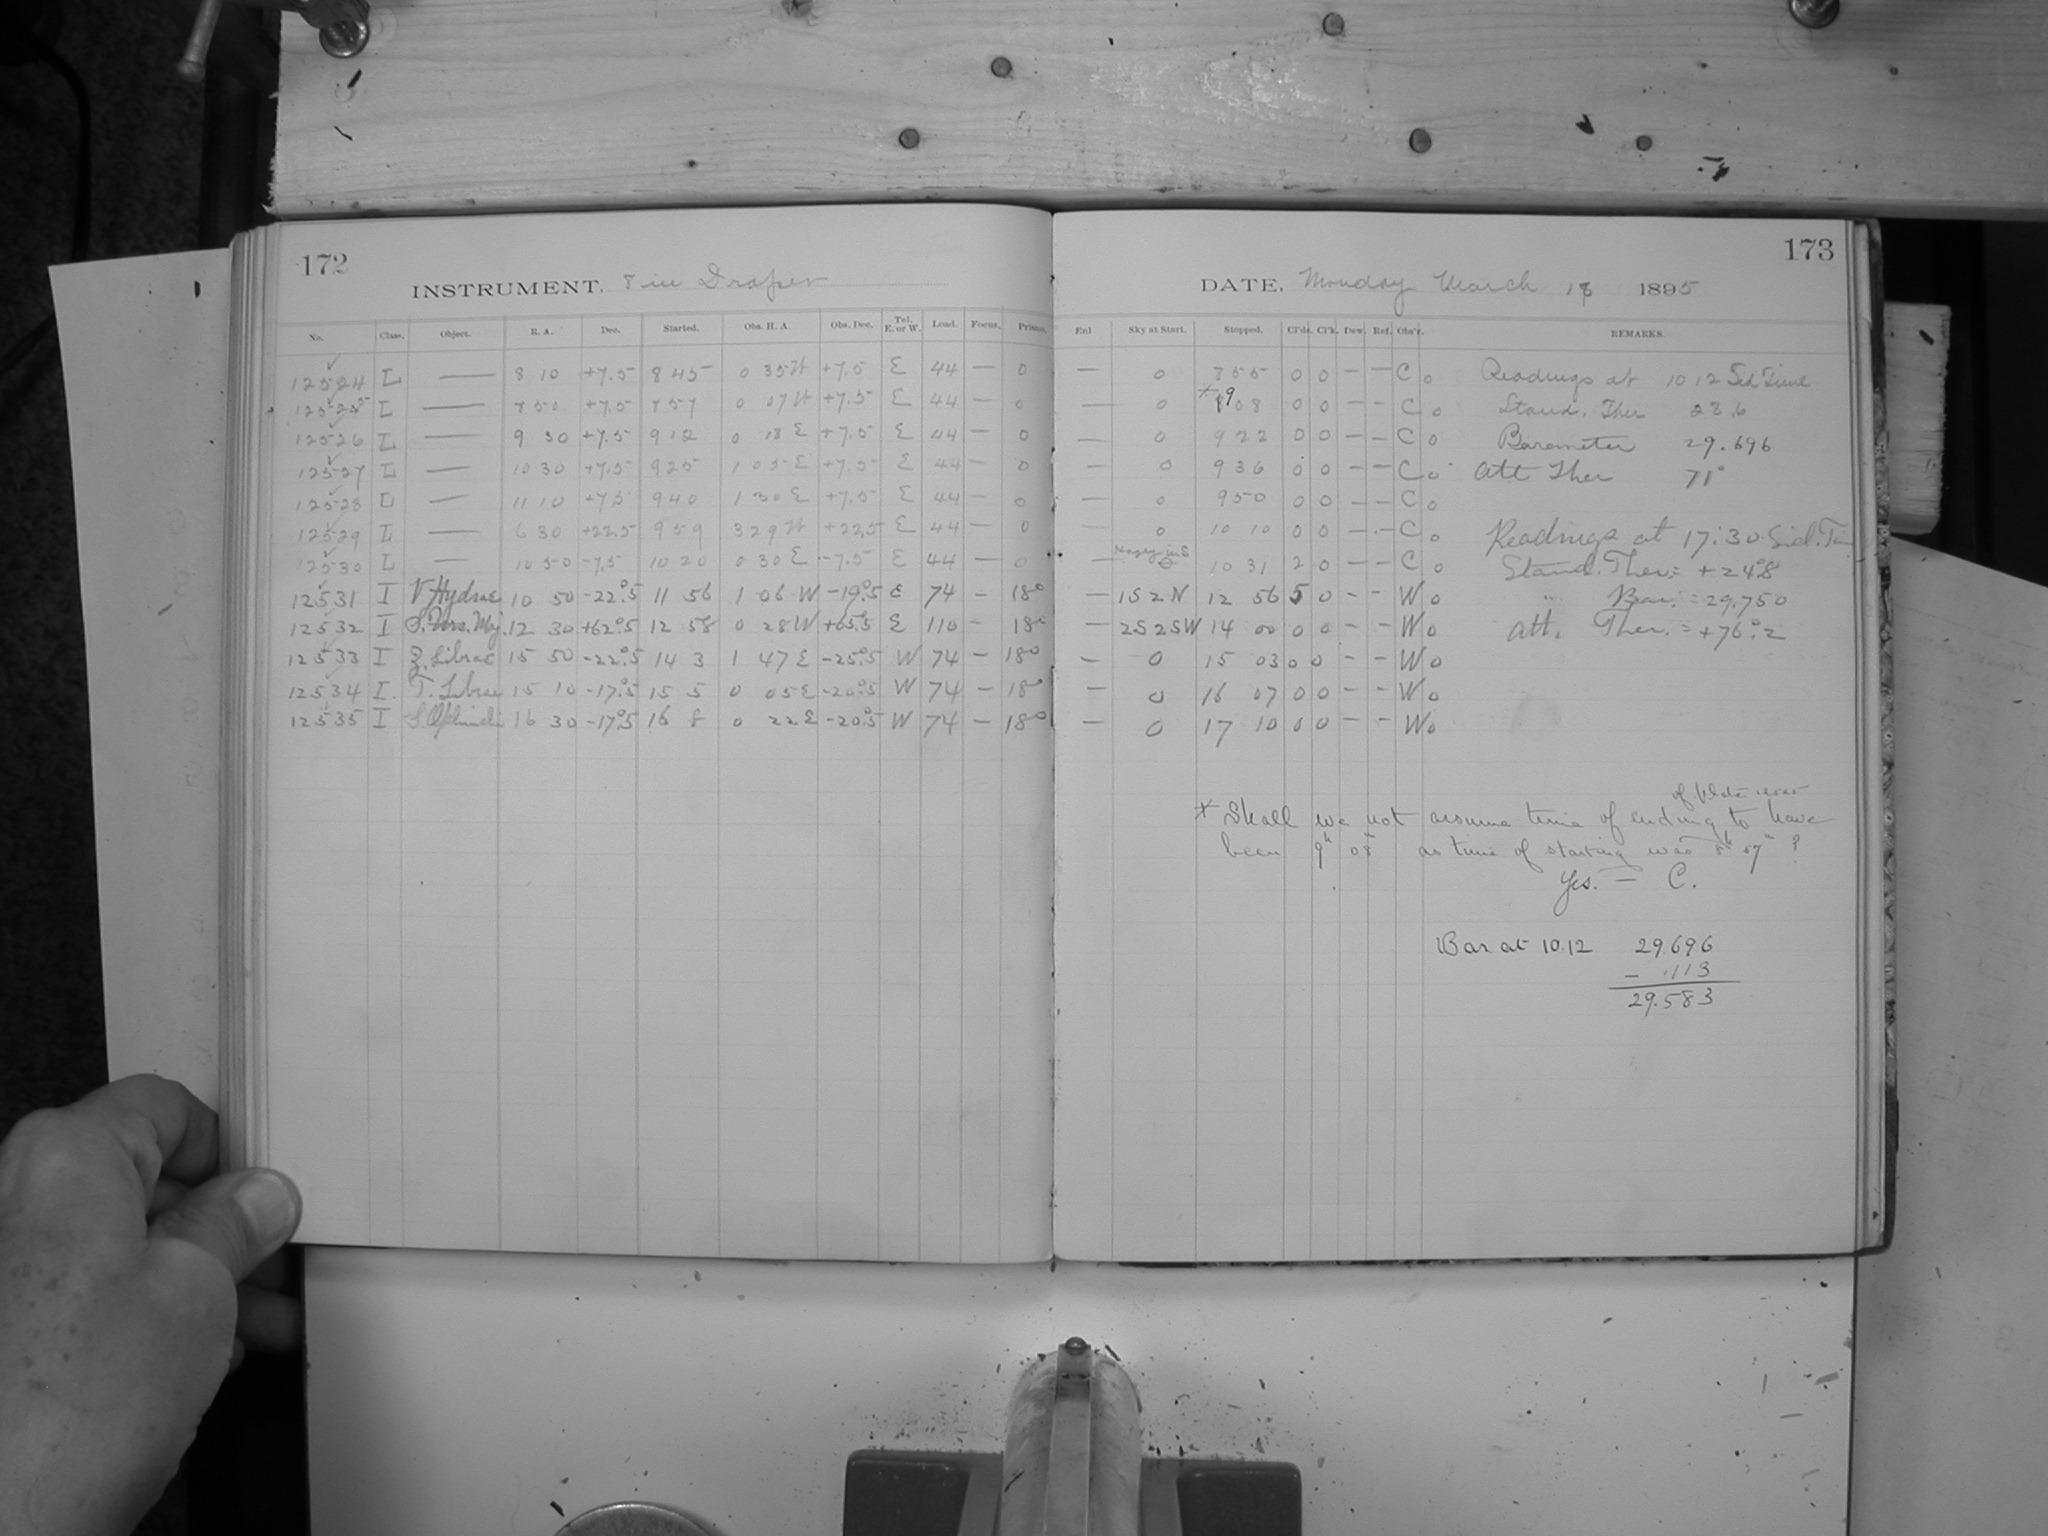 172
INSTRUMENT. 8 in Draper
No. Class. Object. R. A. Dec. Started. Obs. H. A. Obs. Dec. Tel. E. or W. Load. Focus. Prisms.
12524 L — 8 10 +7.5 8 45 0 35 W +7.5 E 44 — 0
12525 L — 8 50 +7.5 8 57 0 07 W +7.5 E 44 — 0
12526 L — 9 30 +7.5 9 12 0 18 E +7.5 E 44 — 0
12527 L — 10 30 +7.5 9 25 1 05 E +7.5 E 44 — 0
12528 L — 11 10 +7.5 9 40 1 30 E +7.5 E 44 — 0
12529 L — 6 30 +22.5 9 59 3 29 W +22.5 E 44 — 0
12530 L — 10 50 -7.5 10 20 0 30 E -7.5 E 44 — 0
12531 I V Hydrae 10 50 -22°.5 11 56 1 06 W -19°.5 E 74 — 18°
12532 I S. Urs. Maj. 12 30 +62°.5 12 58 0 28 W +65°.5 E 110 — 18°
12533 I Z. Librae 15 50 -22°.5 14 3 1 47 E -25°.5 W 74 — 18°
12534 I T. Librae 15 10 -17°.5 15 5 0 05 E -20°.5 W 74 — 18°
12535 I S Ophiuchi 16 30 -17°.5 16 8 0 22 E -20°.5 W 74 — 18°
173
DATE, Monday March 18 1895
Enl Sky at Start. Stopped. Cl'ds. Cl'k. Dew. Ref. Obs'r. REMARKS.
— 0 8 55 0 0 — — Co Readings at 10 12 Sid Time
— 0 * 9 08 0 0 — — Co Stand. Ther 28.6
— 0 9 22 0 0 — — Co Barometer 29.696
— 0 9 36 0 0 — — Co Att Ther 71°
— 0 9 50 0 0 — — Co
— 0 10 10 0 0 — — Co Readings at 17:30 Sid. Tim
— Hazy in S 0 10 31 2 0 — — Co Stand. Ther. = +24°.8
— 1S 2N 12 56 5 0 — — Wo " Bar. = 29.750
— 2S 2SW 14 00 0 0 — — Wo Att. Ther. = +76°.2
— 0 15 03 0 0 — — Wo
— 0 16 07 0 0 — — Wo
— 0 17 10 0 0 — — Wo
of plate
* Shall we not assume time of ending to have
been 9h 08m as time of starting was 8h 57m ?
Yes. — C.
Bar at 10.12 29.696
— .113
29.583